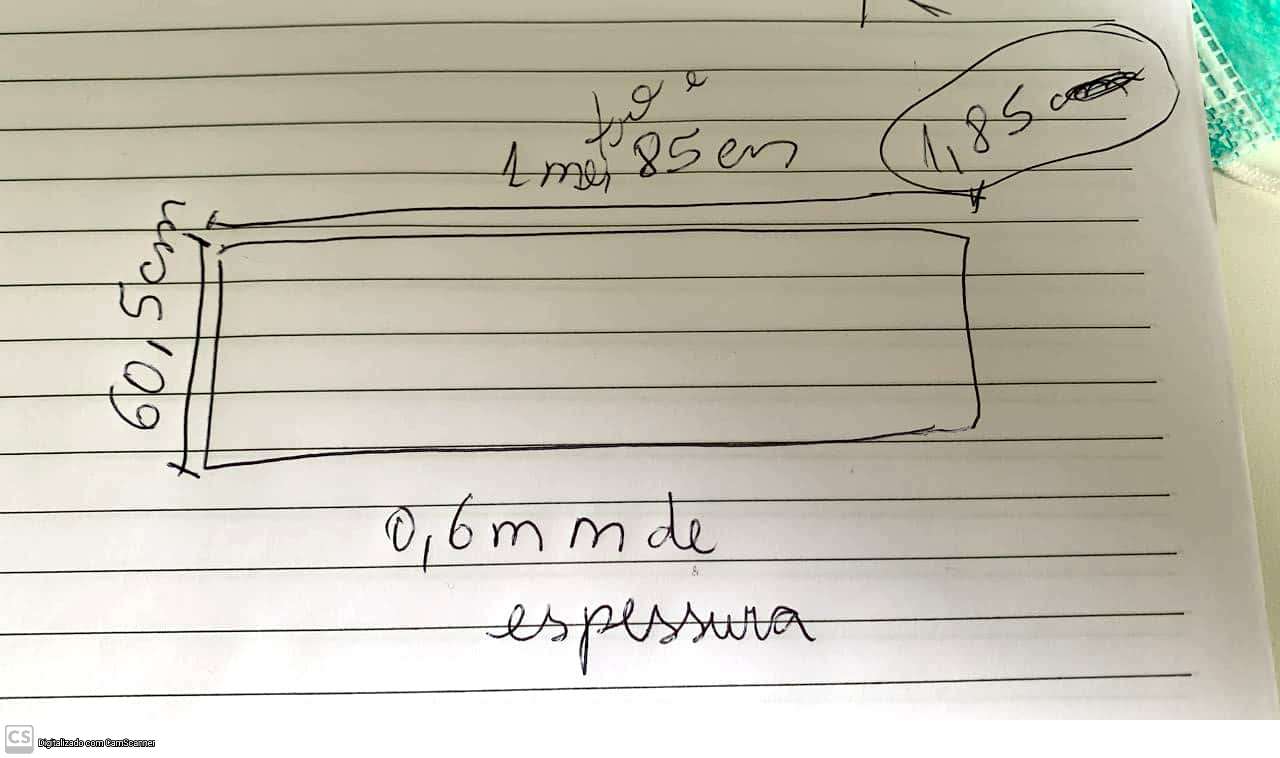 1 metro e 85 cm
1,85
60,5cm
0,6mm de
espessura
CS Digitalizado com CamScanner